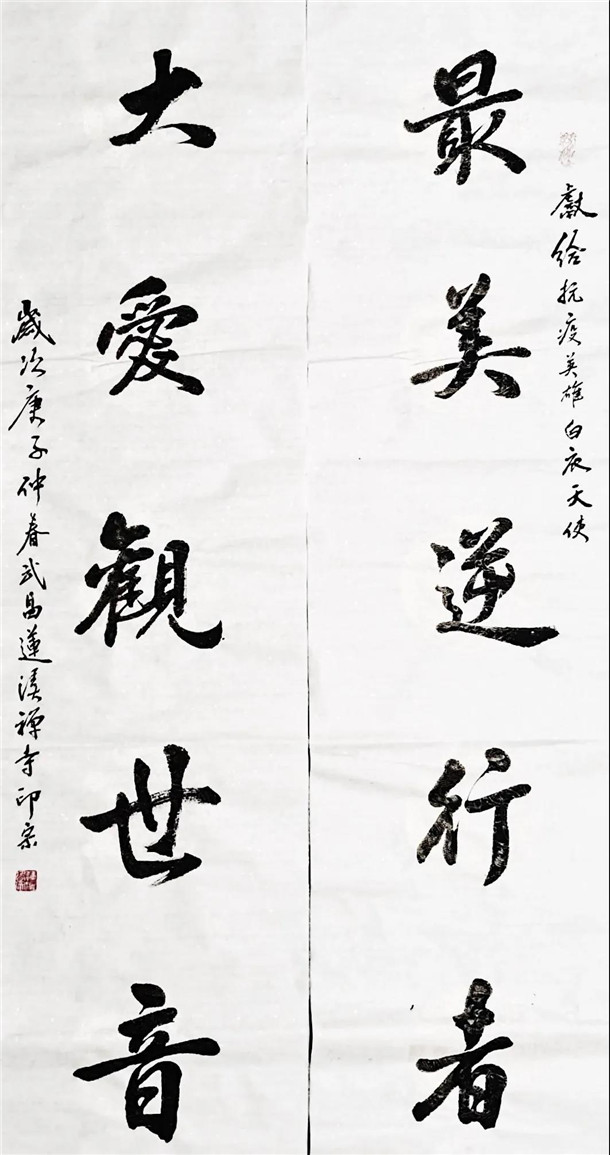 獻给抗疫英雄白衣天使
最美逆行者
大愛觀世音
歲次庚子仲春武昌蓮溪禅寺印宗